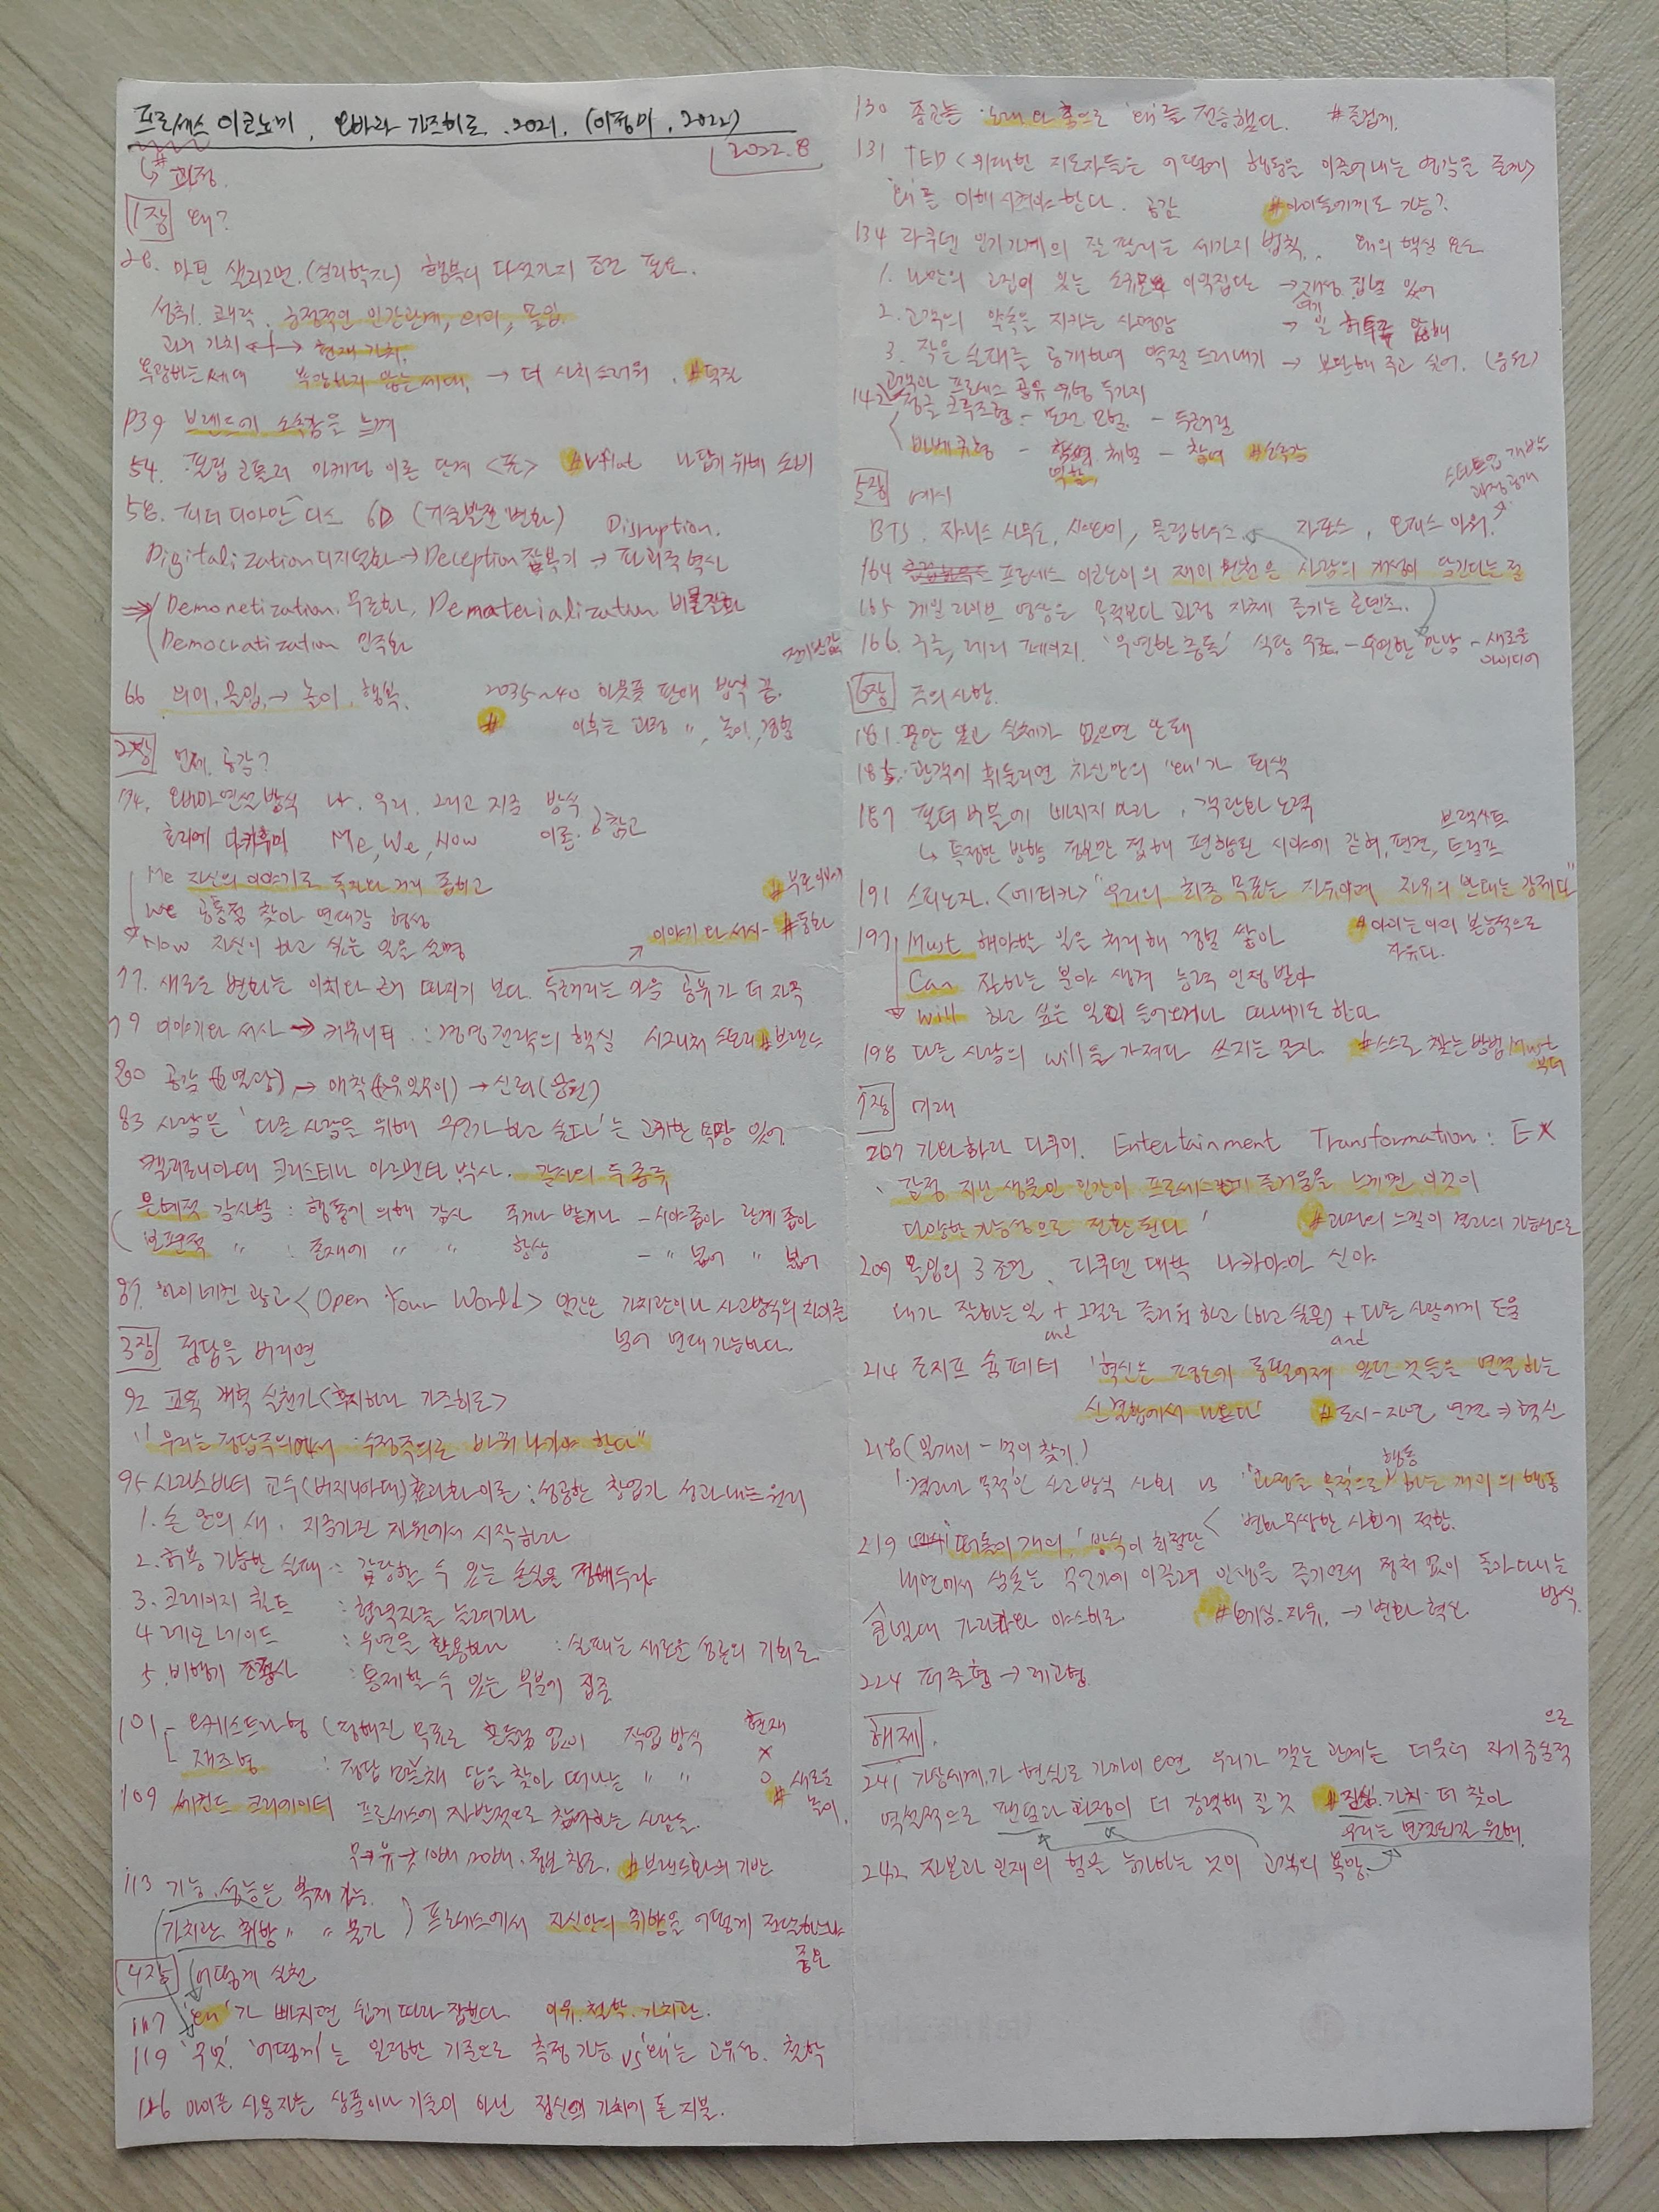 프로세스 이코노미, 오바라 가즈히로, 2021. (이정미, 2022)
2022.8
# 과정.
1장 왜?
28. 마틴 셀리그먼.(심리학자) 행복의 다섯가지 조건 필요.
성취, 쾌락, 긍정적인 인간관계, 의미, 몰입.
과거 가치 ←+→ 현재 가치.
욕망하는 세대 욕망하지 않는 세대. → 더 사치스러워. #덕질
P39 브랜드에 소속감을 느껴
54. 필립 코틀러 마케팅 이론 단계 <표> 나답기 위해 소비
58. 피터 디아만디스 6D (기술발전 변화) Disruption.
Digitalization 디지털화 → Deception 잠복기 → 파괴적 혁신
⇒ Demonetization. 무료화, Dematerialization 비물질화
Democratization 민주화
66 의미, 몰입, → 놀이, 행복. 2035~40 아웃풋 판매 방식 끝.
# 이후는 과정 〃, 놀이, 경험
2장 언제, 공감?
74. 오바마 연설 방식 나. 우리. 그리고 지금 방식
Me, We, Now 이론. 참고
Me 자신의 이야기로 독자와 거리 좁히고
We 공통점 찾아 연대감 형성
Now 자신이 하고 싶은 일을 설명
이야기와 서사 - #동화
77. 새로운 변화는 이치나 근거 따지기 보다. 두근거리는 마음 공유가 더 자극
79 이야기와 서사 → 커뮤니티 : 경영전략의 핵심 시그니처 스토리 #브랜드
80 공감 → 애착 → 신뢰(응원)
83 사람은 '다른 사람을 위해 무언가 하고 싶다'는 고귀한 욕망 있어
캘리포니아대 크리스티나 아르멘타 박사. 감사의 두 종류
은혜적 감사함 : 행동에 의해 감사 주거나 받거나 - 시야 좁아 관계 좁아
보편적 〃 : 존재에 〃 〃 항상 - 〃 넓어 〃 넓어
87. 하이네켄 광고 <Open Your World> 인간은 가치관이나 사고방식의 차이를
넘어 연대 가능하다.
3장 정답을 버리면
92 교육 개혁 실천가 <후지하라 가즈히로>
"우리는 정답주의에서 수정주의로 바꿔 나가야 한다"
95 사라스바티 교수(버지니아대) 효과화 이론 : 성공한 창업가 성과내는 원리
1. 손 안의 새. 지금 가진 자원에서 시작하라
2. 허용 가능한 실패 : 감당할 수 있는 손실을 정해두라
3. 크레이지 퀼트 : 협력자를 늘려가라
4. 레모네이드 : 우연을 활용하라 : 실패는 새로운 성공의 기회로.
5. 비행기 조종사 : 통제할 수 있는 부분에 집중
101 - 오케스트라형 (정해진 목표로 흔들림 없이 작업 방식 현재 x
재즈형 : 정답 모른채 답을 찾아 떠나는 〃 〃 o # 새로운 놀이.
109 세컨드 크리에이터 프로세스에 자발적으로 참여하는 사람들.
무→유→ 10배 20배. 정보 창조. #브랜드화의 기반
113 기능, 성능은 복제 가능.
(가치관 취향 〃 〃 불가) 프로세스에서 자신만의 취향을 어떻게 전달하느냐
중요
4장 어떻게 실천
117 '왜'가 빠지면 쉽게 따라 잡힌다. 이유. 철학. 가치관.
119 '무엇'. '어떻게'는 일정한 기준으로 측정 가능 vs '왜'는 고유성. 철학
126 아이폰 사용자는 상품이나 기술이 아닌 정신의 가치에 돈 지불.
130 종교는 노래와 춤으로 '왜'를 전승했다. #즐겁게.
131 TED <위대한 지도자들은 어떻게 행동을 이끌어내는 영감을 줄까>
'왜'를 이해시켜야 한다. 공감 #아이들에게도 가능?
134 라쿠텐 인기가게의 잘 팔리는 세가지 법칙. 왜의 핵심 요소
1. 나만의 고집이 있는 → 개성 집념 있어
2. 고객의 약속을 지키는 사명감 → 일 허투루 안해
3. 작은 실패를 공개하여 약점 드러내기 → 부탁해 주고 싶어. (응원)
고객과 프로세스 공유 유형 두가지
142 정글 크루즈형 - 도전 모험. - 두근거림
바베큐형 - 역할 체험 - 참여 #소속감
5장 예시
스타트업 개발 과정 공개
BTS. 쟈니스 사무소, 샤오미, 몰입하우스. 자포스, 오피스 아워.
164 프로세스 이코노미의 재미 원천은 사람의 개성이 담긴다는 점
165 게임 라이브 영상은 목적보다 과정 자체 즐기는 콘텐츠.
166. 구글, 래리 페이지. '우연한 충돌' 식당 무료. - 우연한 만남 - 새로운 아이디어
6장 주의사항.
181. 꿈만 있고 실체가 없으면 안돼
185. 관객에 휘둘리면 자신만의 '왜'가 퇴색
187 필터 버블에 빠지지 마라. 객관화 노력
브렉시트
↳ 특정한 방향 정보만 접해 편향된 시야에 갇혀, 편견, 트럼프
191 스피노자. <에티카> "우리의 최종 목표는 자유이며 자유의 반대는 강제다"
# 아이는 이미 본능적으로 자유다.
197 Must 해야할 일을 처리해 경험 쌓아
Can 잘하는 분야 생겨 능력 인정 받아
Will 하고 싶은 일이 들어오거나 따내기도 한다
198 다른 사람의 will을 가져다 쓰지는 말자. #스스로 찾는 방법 Must 부터
7장 미래
207 기타하라 다쿠야. Entertainment Transformation : EX
'감정 지닌 생물인 인간이 프로세스에서 즐거움을 느끼면 이것이
다양한 가능성으로 전환된다' #과정의 느낌이 결과의 가능성으로
209 몰입의 3조건. 라쿠텐 대학 나카야마 신야
내가 잘하는 일 + 그걸로 즐거워 하고 (하고 싶은) + 다른 사람에게 도움
and and
214 조지프 슘페터 '혁신은 평소에 동떨어져 있던 것들을 연결하는
신결합에서 나온다' #도시-자연 연결 ⇒ 혁신
218 (일개미 - 먹이 찾기)
'결과가 목적'인 사고방식 사회 vs '과정을 목적으로' 행동 하는 개미의 행동
< 변화무쌍한 사회에 적합.
219 떠돌이 개미. '방식'이 최첨단
내면에서 샘솟는 무언가에 이끌려 인생을 즐기면서 정처 없이 돌아다니는
방식.
코넬대 가라사와 야스히로. #호기심. 자유. → 변화 혁신.
224 퍼즐형 → 레고형.
해제.
241 가상세계가 현실로 가까이 오면 우리가 맺는 관계는 더욱더 자기중심적
으로
역설적으로 팬덤과 과정이 더 강력해 질 것 #진심. 가치 더 찾아
우리는 연결되길 원해.
242 자본과 인재의 힘을 능가하는 것이 고객의 욕망.